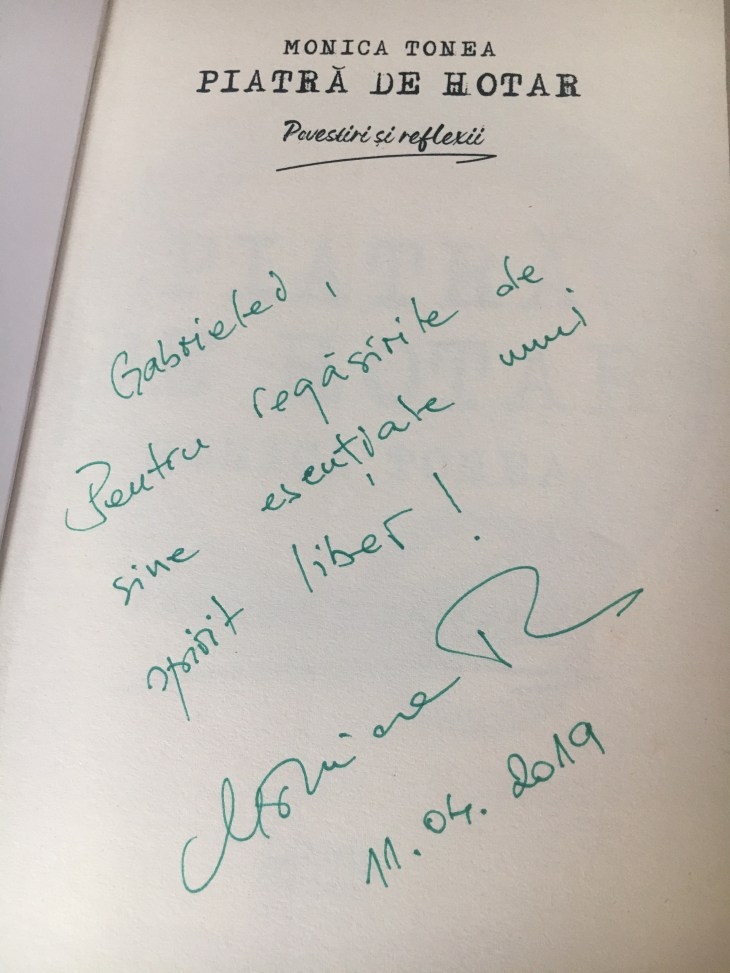 MONICA TONEA
PIATRĂ DE HOTAR
Povestiri și reflexii
Gabrielei,
Pentru regăsirile de
sine esențiale unui
spirit liber!
Monica T
11.04.2019